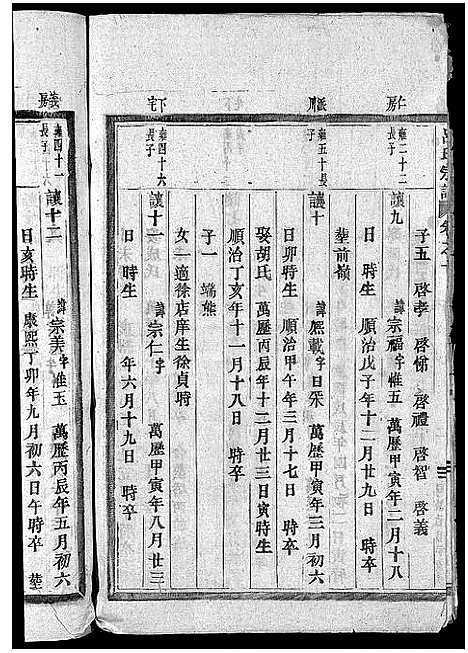 呂氏宗譜 卷之二
子五 啓孝 啓悌 啓禮 啓智 啓義
仁房
雍二十二
長子
讓九 諱宗福字惟五 萬歷甲寅年二月十八
日 時生 順治戊子年十二月廿九日 時卒
葬前嶺
派川
雍五十長
子
讓十 諱熙載字日采 萬歷甲寅年三月初六
日卯時生 順治甲午年三月十七日 時卒
娶胡氏 萬歷丙辰年十二月廿三日寅時生
順治丁亥年十一月十八日 時卒
子一 端熊
女一適徐店庠生徐貞時
下宅
雍四十六
長子
讓十一 諱宗仁字 萬歷甲寅年八月廿三
日 時生 年六月十九日 時卒
義房
雍四十一
長子
讓十二 諱宗美字惟玉 萬歷丙辰年五月初六
日亥時生 康熙丁卯年九月初六日午時卒 葬